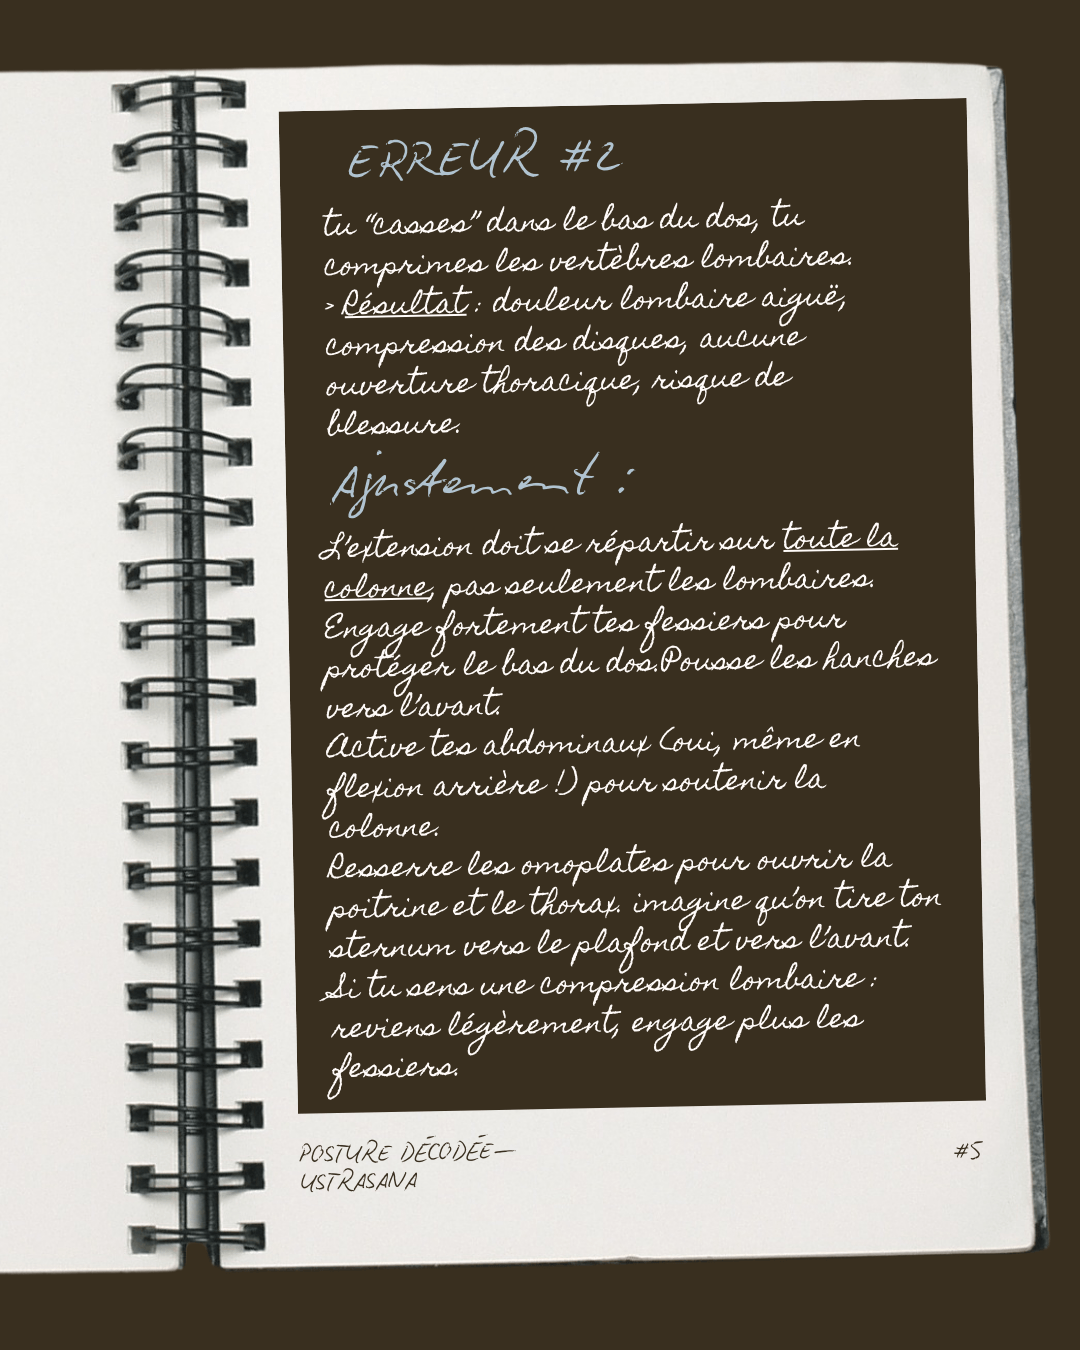 ERREUR #2
tu “casses” dans le bas du dos, tu
comprimes les vertèbres lombaires.
> Résultat : douleur lombaire aiguë,
compression des disques, aucune
ouverture thoracique, risque de
blessure.
Ajustement :
L’extension doit se répartir sur toute la
colonne, pas seulement les lombaires.
Engage fortement tes fessiers pour
protéger le bas du dos.Pousse les hanches
vers l’avant.
Active tes abdominaux (oui, même en
flexion arrière !) pour soutenir la
colonne.
Resserre les omoplates pour ouvrir la
poitrine et le thorax. imagine qu’on tire ton
sternum vers le plafond et vers l’avant.
Si tu sens une compression lombaire :
reviens légèrement, engage plus les
fessiers.
POSTURE DÉCODÉE—
USTRASANA
#5